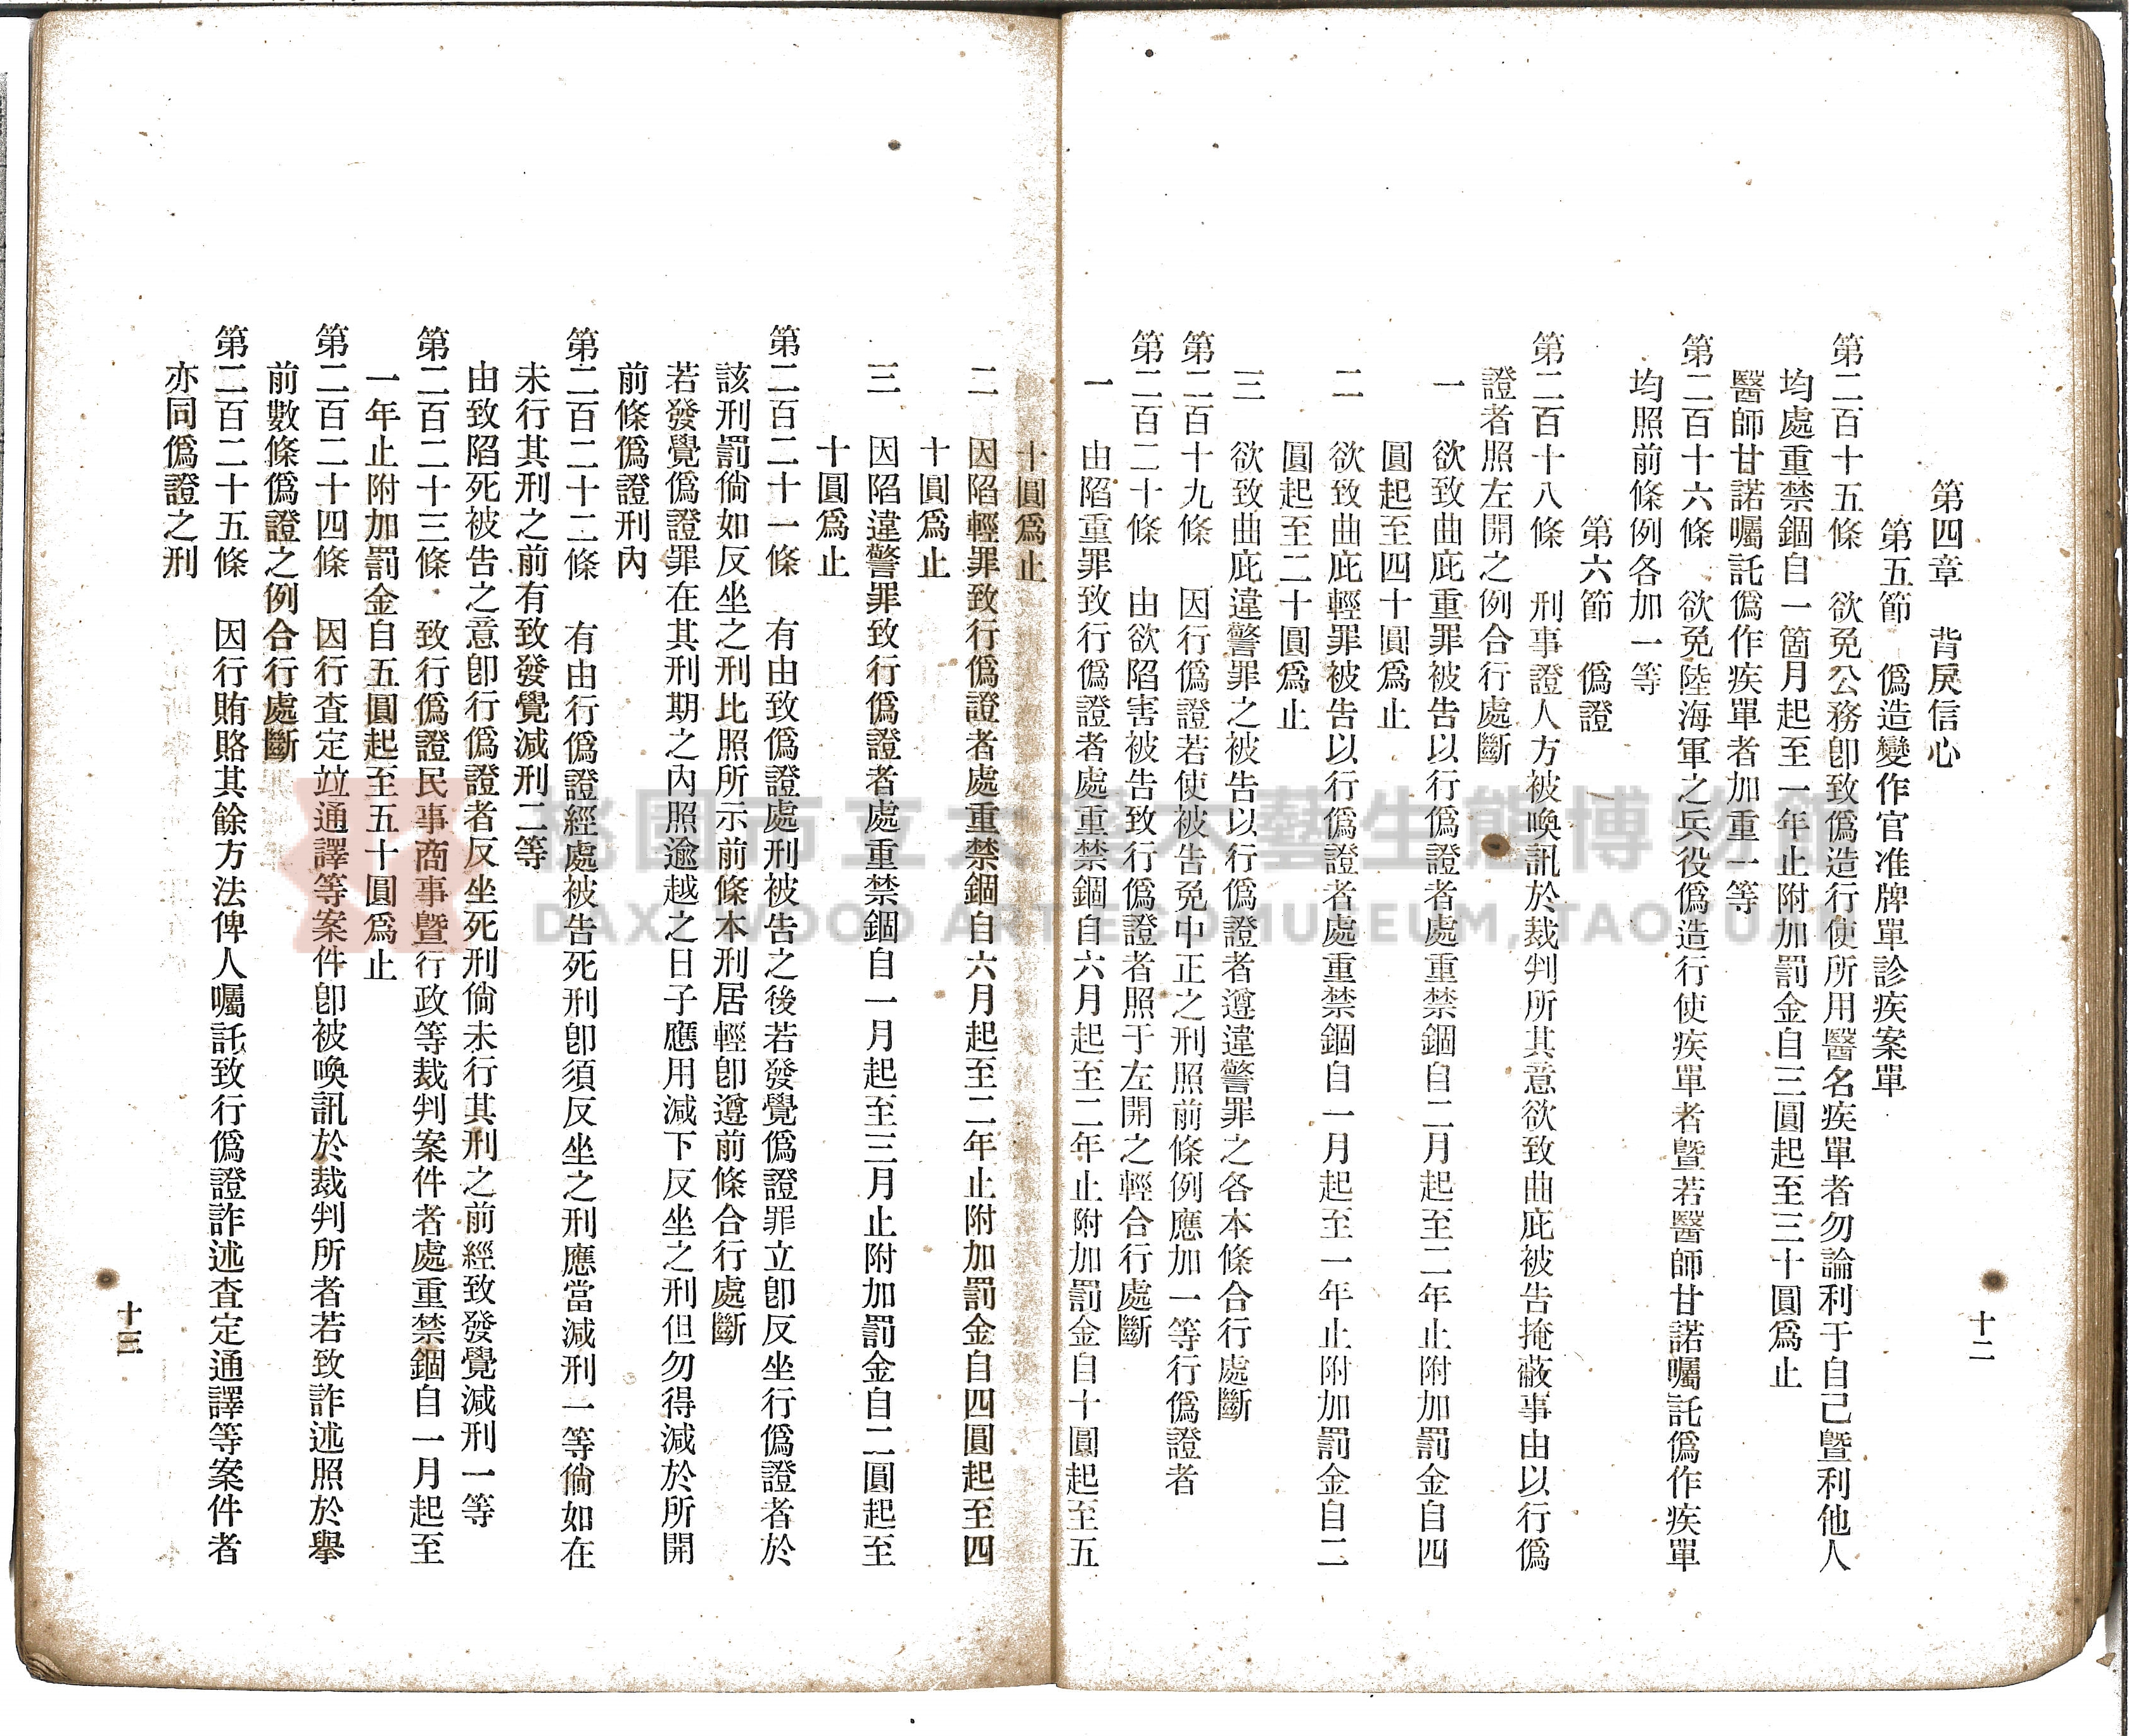 十二
第四章　背戾信心
第五節　僞造變作官准牌單診疾案單
第二百十五條　欲免公務卽致僞造行使所用醫名疾單者勿論利于自己曁利他人
均處重禁錮自一箇月起至一年止附加罰金自三圓起至三十圓爲止
醫師甘諾囑託僞作疾單者加重一等
第二百十六條　欲免陸海軍之兵役僞造行使疾單者曁若醫師甘諾囑託僞作疾單
均照前條例各加一等
第六節　僞證
第二百十八條　刑事證人方被喚訊於裁判所其意欲致曲庇被告掩蔽事由以行僞
證者照左開之例合行處斷
一　欲致曲庇重罪被告以行僞證者處重禁錮自二月起至二年止附加罰金自四
圓起至四十圓爲止
二　欲致曲庇輕罪被告以行僞證者處重禁錮自一月起至一年止附加罰金自二
圓起至二十圓爲止
三　欲致曲庇違警罪之被告以行僞證者遵違警罪之各本條合行處斷
第二百十九條　因行僞證若使被告免中正之刑照前條例應加一等行僞證者
第二百二十條　由欲陷害被告致行僞證者照于左開之輕合行處斷
一　由陷重罪致行僞證者處重禁錮自六月起至二年止附加罰金自十圓起至五
十圓爲止
二　因陷輕罪致行僞證者處重禁錮自六月起至二年止附加罰金自四圓起至四
十圓爲止
三　因陷違警罪致行僞證者處重禁錮自一月起至三月止附加罰金自二圓起至
十圓爲止
第二百二十一條　有由致僞證處刑被告之後若發覺僞證罪立卽反坐行僞證者於
該刑罰倘如反坐之刑比照所示前條本刑居輕卽遵前條合行處斷
若發覺僞證罪在其刑期之內照逾越之日子應用減下反坐之刑但勿得減於所開
前條僞證刑內
第二百二十二條　有由行僞證經處被告死刑卽須反坐之刑應當減刑一等倘如在
未行其刑之前有致發覺減刑二等
由致陷死被告之意卽行僞證者反坐死刑倘未行其刑之前經致發覺減刑一等
第二百二十三條　致行僞證民事商事曁行政等裁判案件者處重禁錮自一月起至
一年止附加罰金自五圓起至五十圓爲止
第二百二十四條　因行査定竝通譯等案件卽被喚訊於裁判所者若致詐述照於擧
前數條僞證之例合行處斷
第二百二十五條　因行賄賂其餘方法俾人囑託致行僞證詐述査定通譯等案件者
亦同僞證之刑
十三
桃園市立大溪木藝生態博物館
DAXI WOOD ART ECOMUSEUM, TAOYUAN